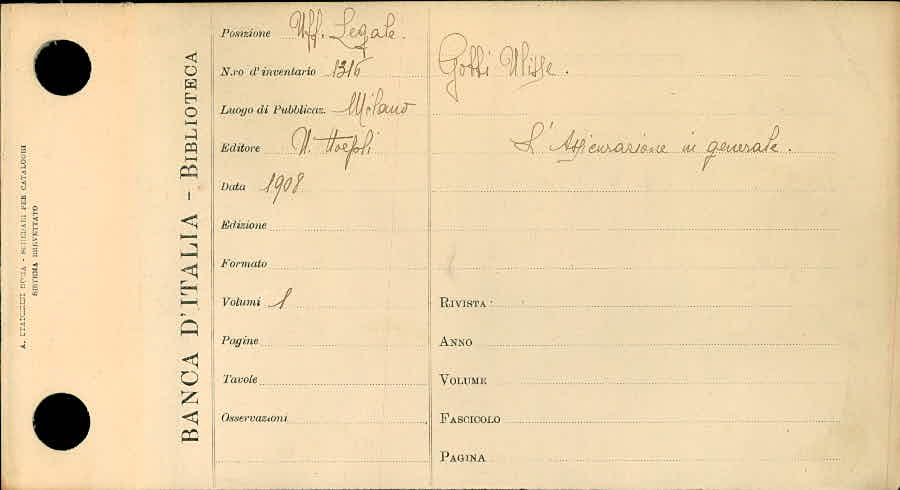 A. STADERINI ROMA - SCHEDARI PER CATALOGHI
SISTEMA BREVETTATO
BANCA D'ITALIA - BIBLIOTECA
Posizione Uff. Legale.
N.ro d'inventario 1316
Luogo di Pubblicaz. Milano
Editore U. Hoepli
Data 1908
Edizione
Formato
Volumi 1
Pagine
Tavole
Osservazioni
Gobbi Ulisse.
L'Assicurazione in generale.
RIVISTA
ANNO
VOLUME
FASCICOLO
PAGINA